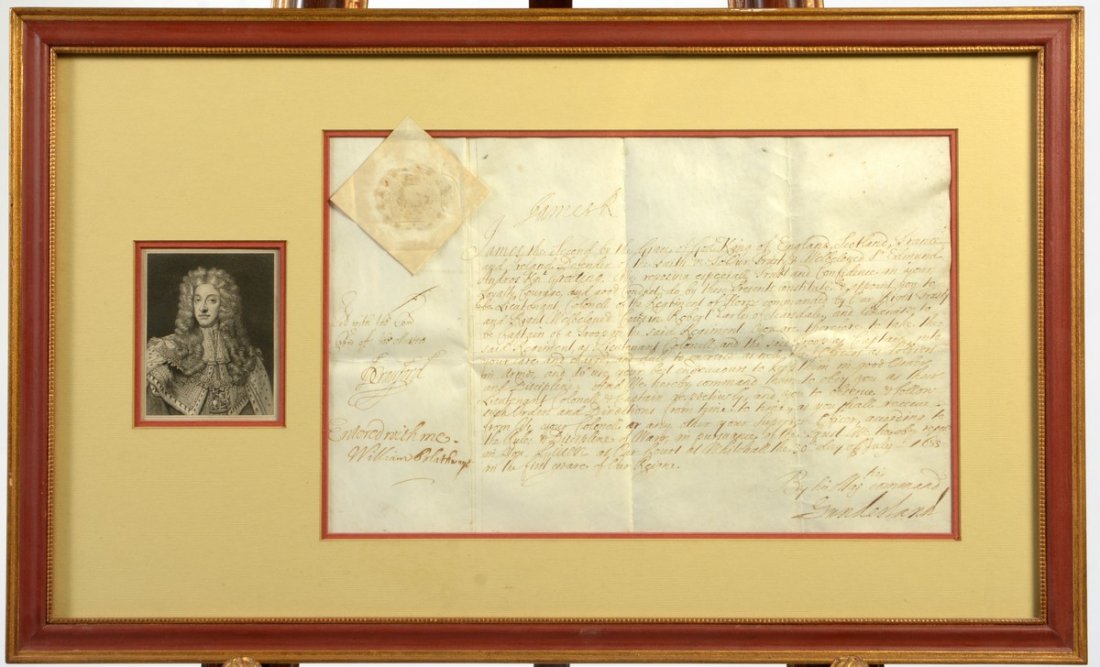 James R
James the Second by the Grace of God King of England, Scotland, France
and Ireland Defender of the Faith &c To Our Trusty & Welbeloved Sr Edmund
reposing especiall Trust and Confidence in your
Loyalty, Courage, and good Conduct, do by these Presents constitute & appoint you to
be Lieutenant Colonell of the Regiment of Horse commanded by Our Right Trusty
and Right Welbeloved Cousin Robert Earle of and likewise to
be Captain of a Troop in the said Regiment You are therefore to take the
said Regiment as Lieutenant Colonell and the said Troop as Captain into
your care and charge and to exercise as well the Officers as Soldiers
in Armes, and to use your best endeavours to keep them in good Order
and Discipline, And We hereby command them to obey you as their
Lieutenant Colonell & Captain respectively, and you to observe & follow
such Orders and Directions from time to time, as you shall receive
from Us, your Colonell or any other your Superior Officer, according to
the Rules & Discipline of Warr, in pursuance of the Trust We hereby repose
in You. at Our Court at Whitehall the 30th day of July 1685
in the first yeare of Our Reigne.
By his Majties command
Sunderland
Ent with the Com
of the
Entered with me.
William Blathwayt